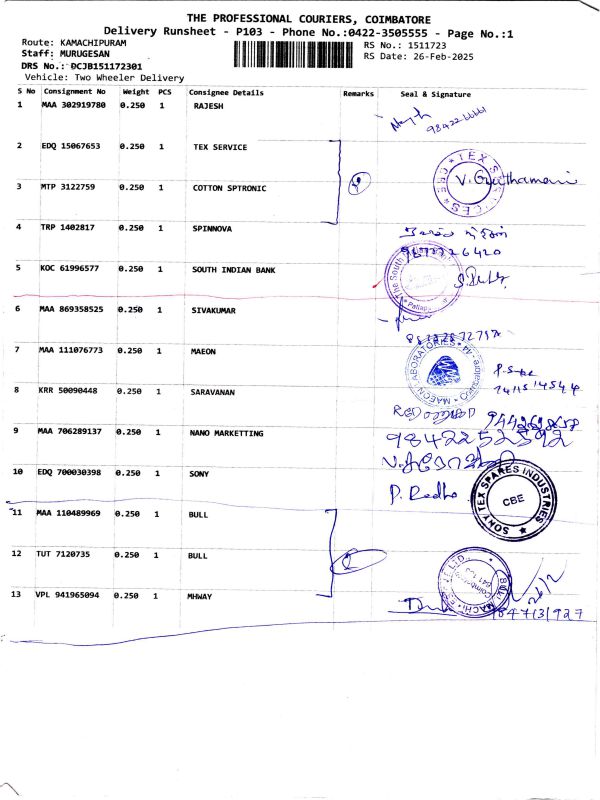 THE PROFESSIONAL COURIERS, COIMBATORE
Delivery Runsheet - P103 - Phone No.:0422-3505555 - Page No.:1
Route: KAMACHIPURAM RS No.: 1511723
Staff: MURUGESAN RS Date: 26-Feb-2025
DRS No.: DCJB151172301
Vehicle: Two Wheeler Delivery
S No Consignment No Weight PCS Consignee Details Remarks Seal & Signature
1 MAA 302919780 0.250 1 RAJESH
2 EDQ 15067653 0.250 1 TEX SERVICE
TEX SERVICES CBE
3 MTP 3122759 0.250 1 COTTON SPTRONIC
4 TRP 1402817 0.250 1 SPINNOVA
5 KOC 61996577 0.250 1 SOUTH INDIAN BANK
The South
6 MAA 869358525 0.250 1 SIVAKUMAR
7 MAA 111076773 0.250 1 MAEON
MAEON LABORATORIES
8 KRR 50090448 0.250 1 SARAVANAN
9 MAA 706289137 0.250 1 NANO MARKETTING
9842252592
10 EDQ 700030398 0.250 1 SONY
P. Radha
SONY TEX SPARES INDUSTRIES
CBE
11 MAA 110489969 0.250 1 BULL
12 TUT 7120735 0.250 1 BULL
26/2
13 VPL 941965094 0.250 1 MHWAY